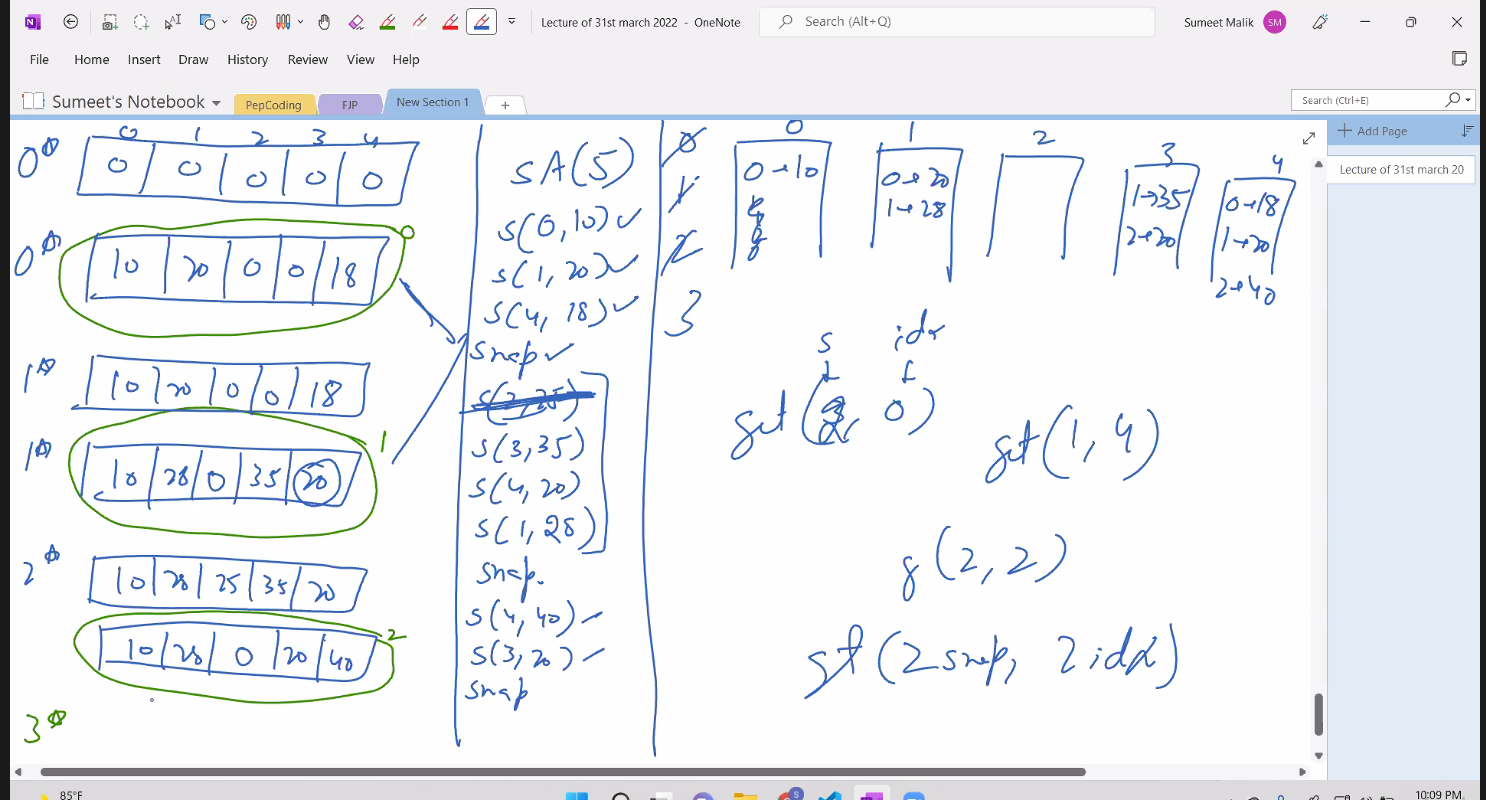 Lecture of 31st march 2022 - OneNote
Search (Alt+Q)
Sumeet Malik
SM
File Home Insert Draw History Review View Help
Sumeet's Notebook
PepCoding
FJP
New Section 1
+
Search (Ctrl+E)
Add Page
Lecture of 31st march 20
0 1 2 3 4
0 0 0 0 0 0
0 10 20 0 0 18 0
1 10 20 0 0 18
1 10 28 0 35 20 1
2 10 28 25 35 20
10 28 0 20 40 2
3
SA(5)
S(0, 10)
S(1, 20)
S(4, 18)
Snap
S(2, 25)
S(3, 35)
S(4, 20)
S(1, 28)
Snap.
S(4, 40)
S(3, 20)
Snap
0
1
2
3
0 1 2 3 4
0→10
0→20
1→28
1→35
2→20
0→18
1→20
2→40
s idx
get( , 0)
get(1, 4)
g(2, 2)
get(2 snap, 2 idx)
85°F
10:09 PM